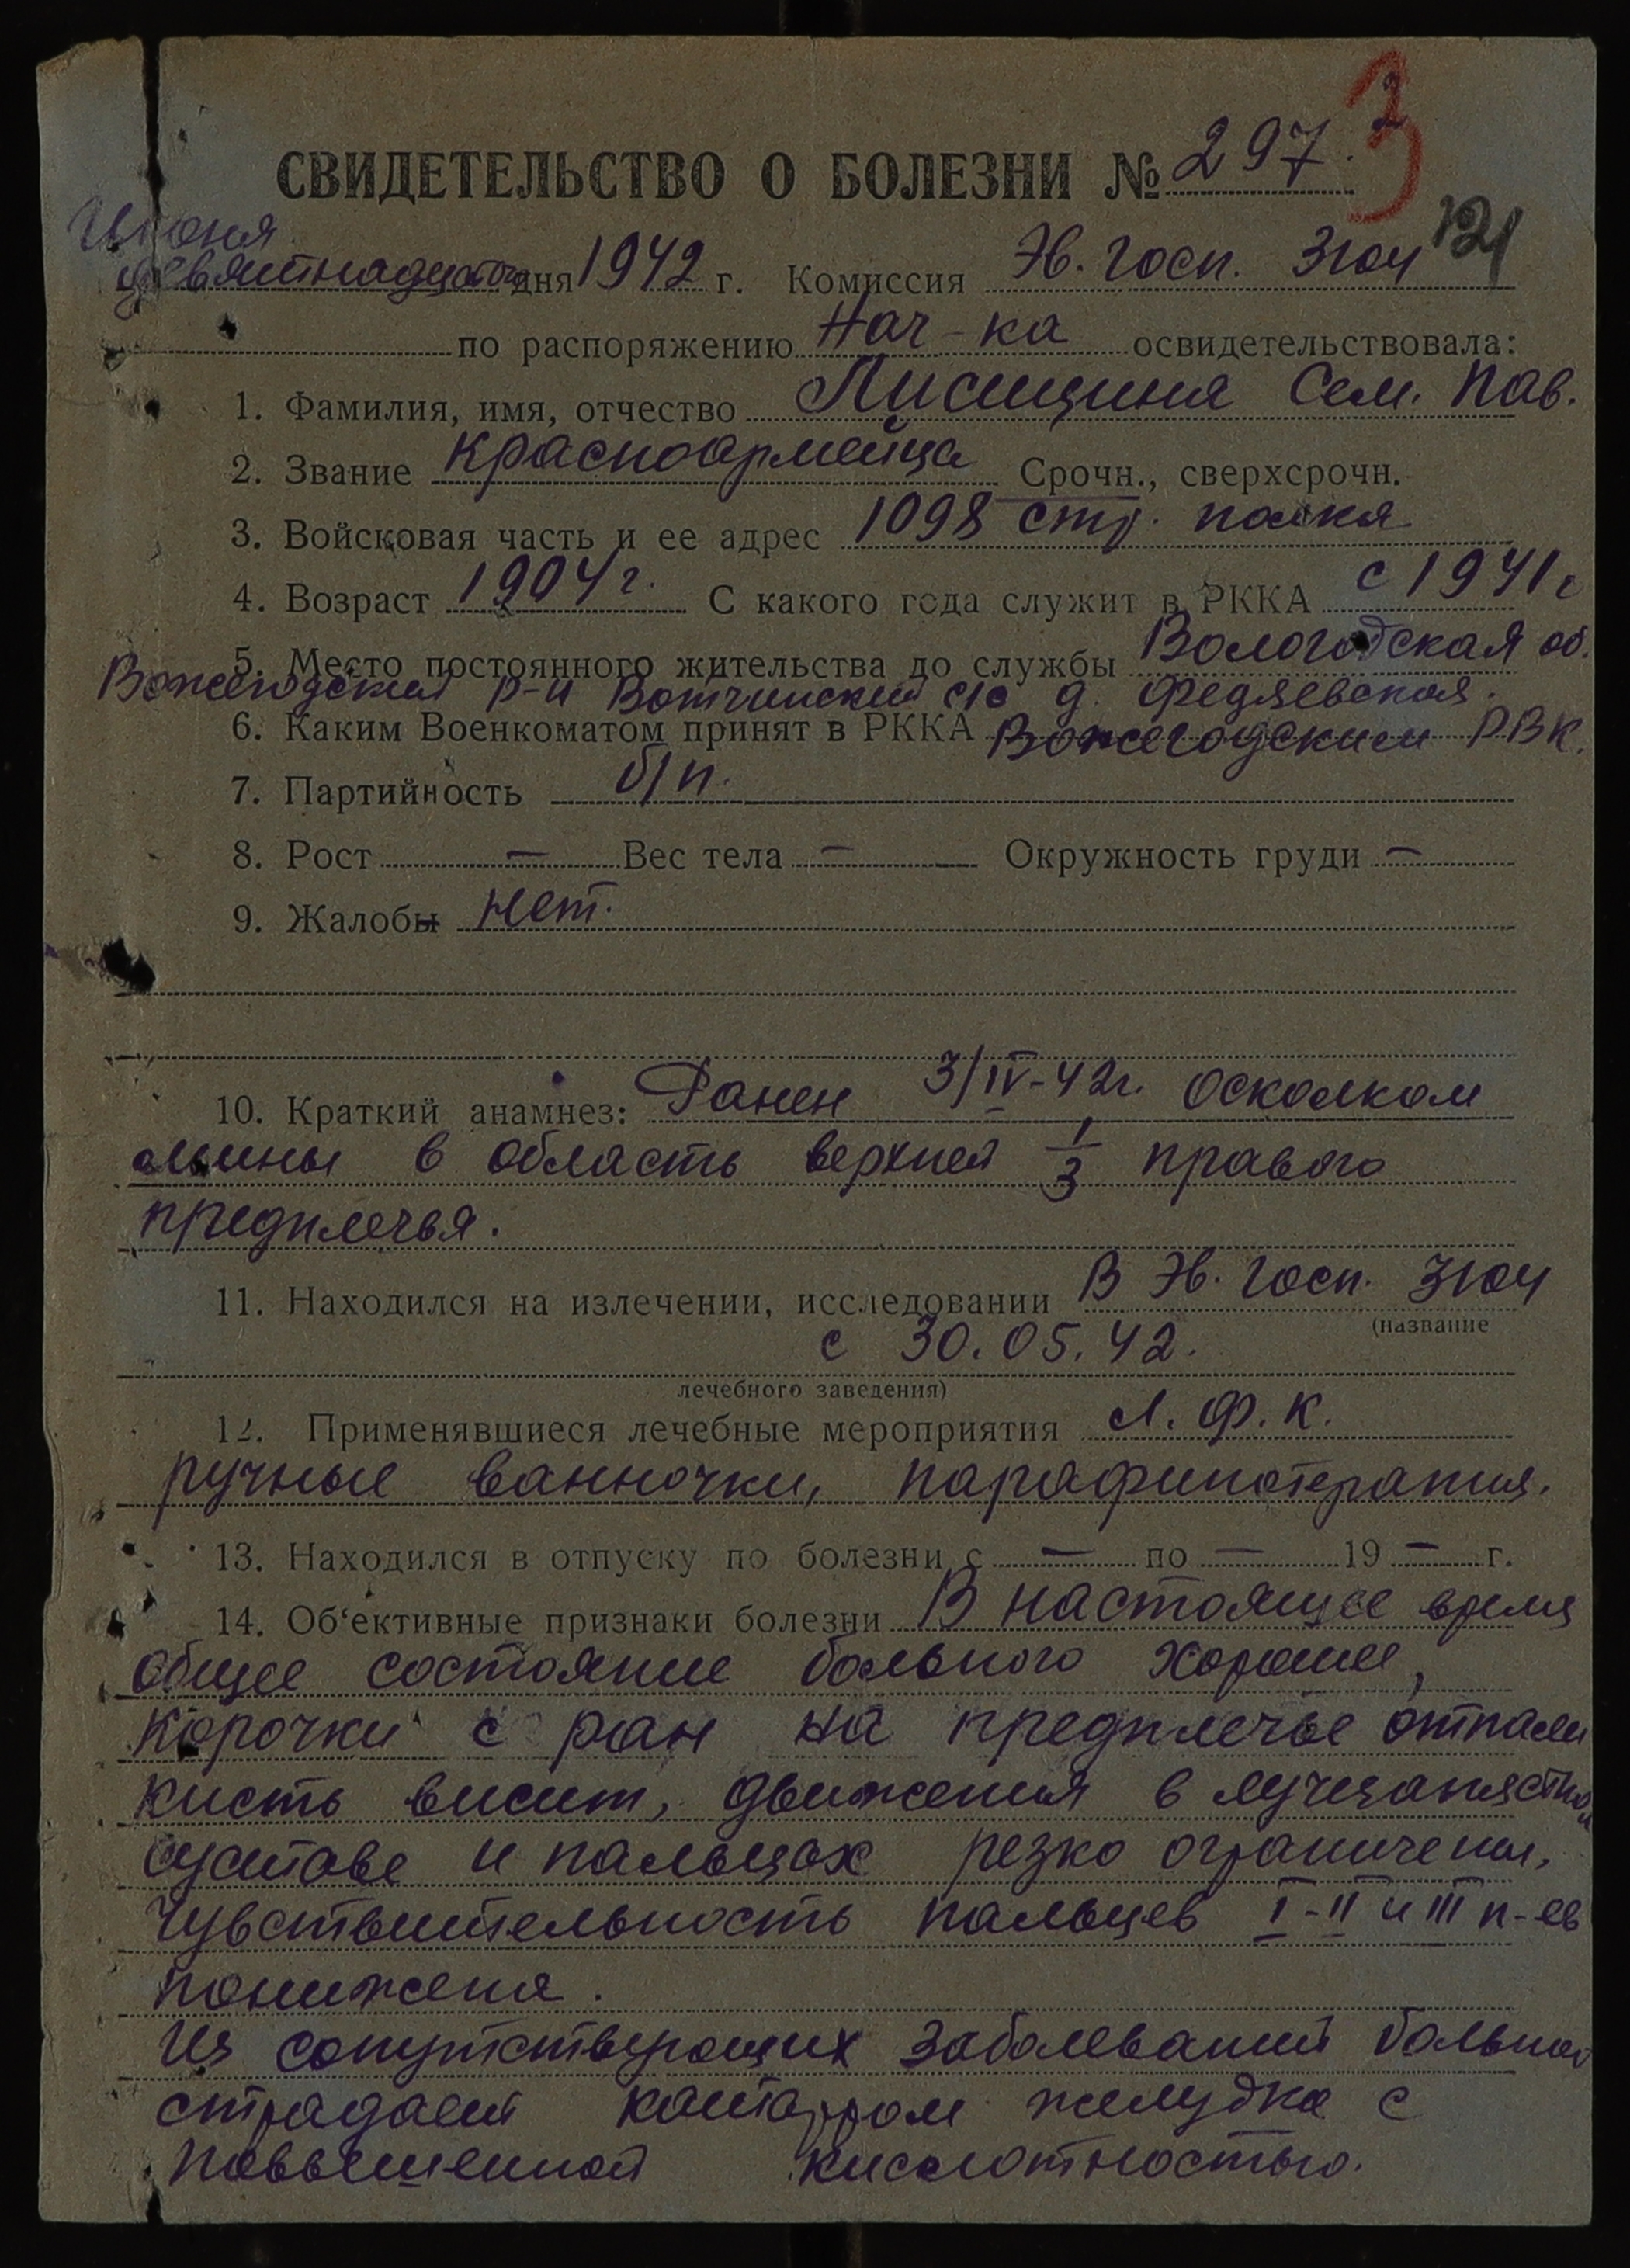 3
СВИДЕТЕЛЬСТВО О БОЛЕЗНИ № 297.
121
Июня
девятнадцатого дня 1942 г. Комиссия Эв. госп. 3104
по распоряжению Нач-ка освидетельствовала:
1. Фамилия, имя, отчество Лисицина Сем. Пав.
2. Звание красноармейца Срочн., сверхсрочн.
3. Войсковая часть и ее адрес 1098 стр. полка
4. Возраст 1904 г. С какого года служит в РККА с 1941 г
5. Место постоянного жительства до службы Вологодская об.
Вожегодский р-н Вотчинский с/с д. Федяевская.
6. Каким Военкоматом принят в РККА Вожегодским РВК.
7. Партийность б/п.
8. Рост — Вес тела — Окружность груди —
9. Жалобы нет.
10. Краткий анамнез: Ранен 3/IV-42г. осколком
мины в область верхней 1/3 правого
предплечья.
11. Находился на излечении, исследовании В Эв. госп. 3104
(название
с 30.05.42.
лечебного заведения)
12. Применявшиеся лечебные мероприятия Л.Ф.К.
ручные ванночки, парафинотерапия.
13. Находился в отпуску по болезни с — по — 19 — г.
14. Об‘ективные признаки болезни В настоящее время
общее состояние больного хорошее,
корочки с ран на предплечье отпали
кисть висит, движения в лучезапястном
суставе и пальцах резко ограничены,
чувствительность пальцев I-II и III п-ев
понижена.
Из сопутствующих заболеваний больной
страдает катарром желудка с
повышенной кислотностью.